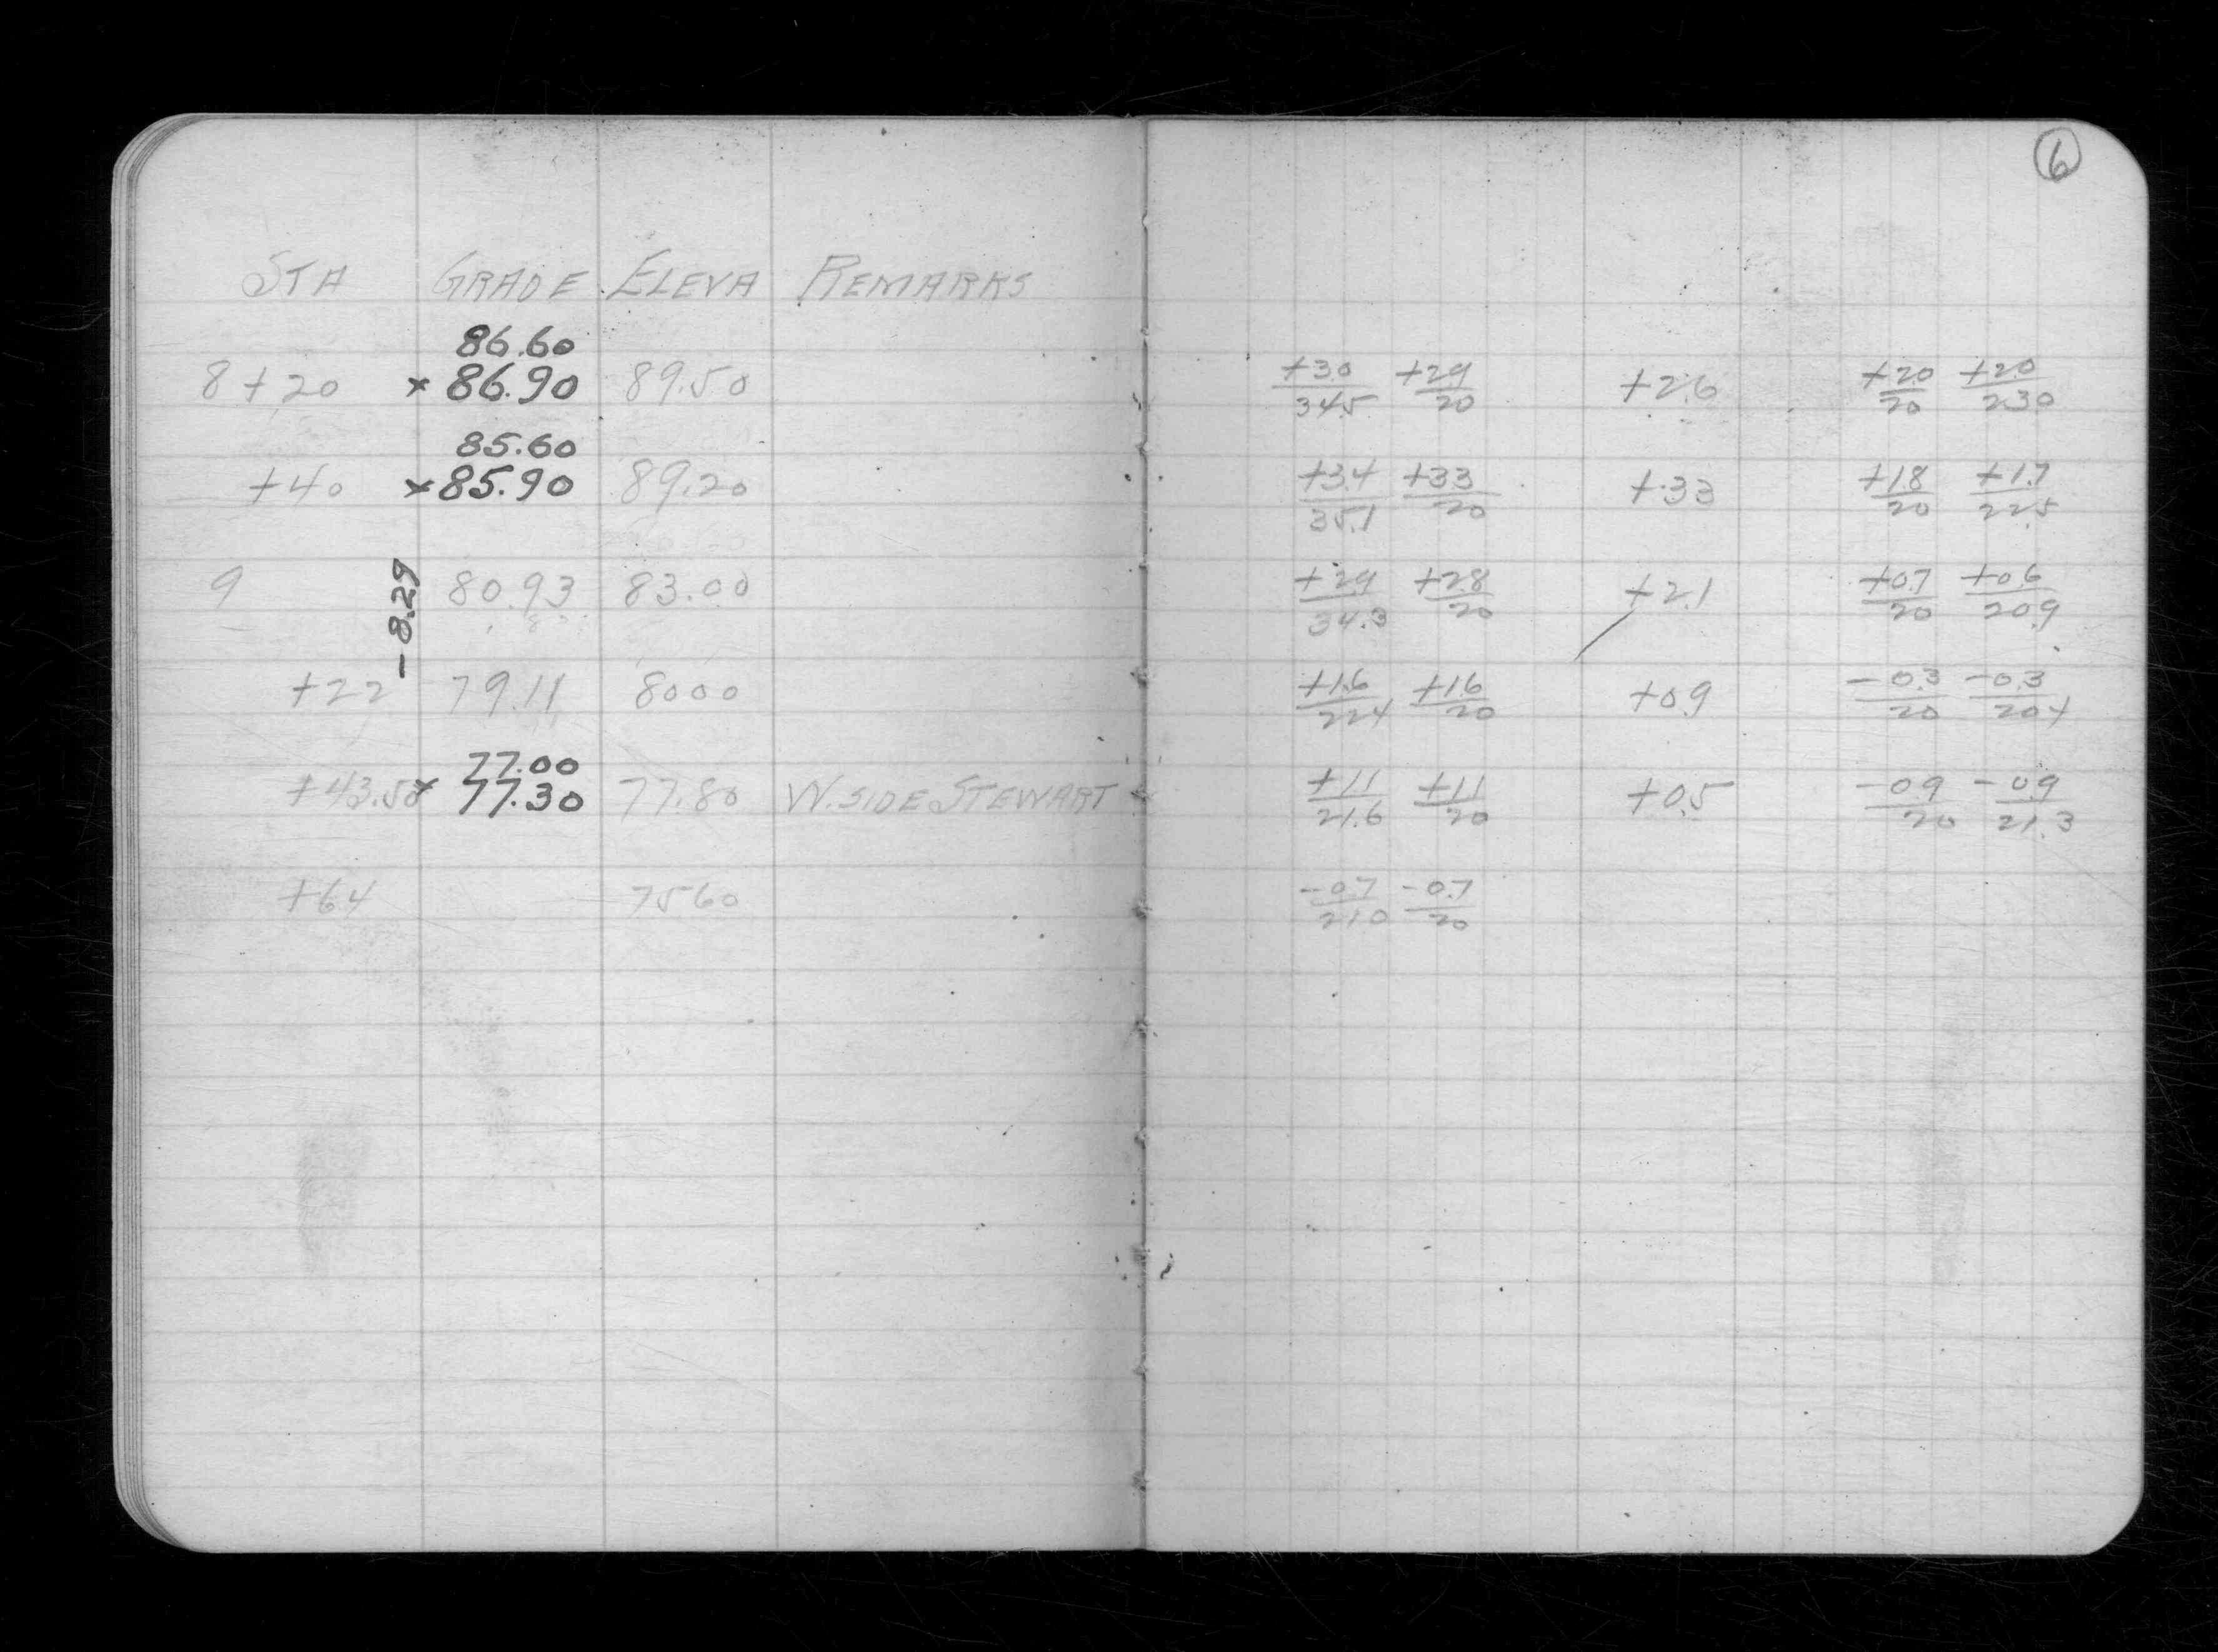 6
STA GRADE ELEVA REMARKS
86.60
8+20 x 86.90 89.50 +3.0/34.5 +2.9/20 +2.6 +2.0/20 +2.0/23.0
85.60
+40 x 85.90 89.20 +3.4/35.1 +3.3/20 +3.3 +1.8/20 +1.7/22.5
9 80.93 83.00 +2.9/34.3 +2.8/20 +2.1 +0.7/20 +0.6/20.9
-8.29
+22 79.11 80.00 +1.6/22.4 +1.6/20 +0.9 -0.3/20 -0.3/20.4
77.00
+43.50 x 77.30 77.80 W. SIDE STEWART +1.1/21.6 +1.1/20 +0.5 -0.9/20 -0.9/21.3
+64 75.60 -0.7/21.0 -0.7/20